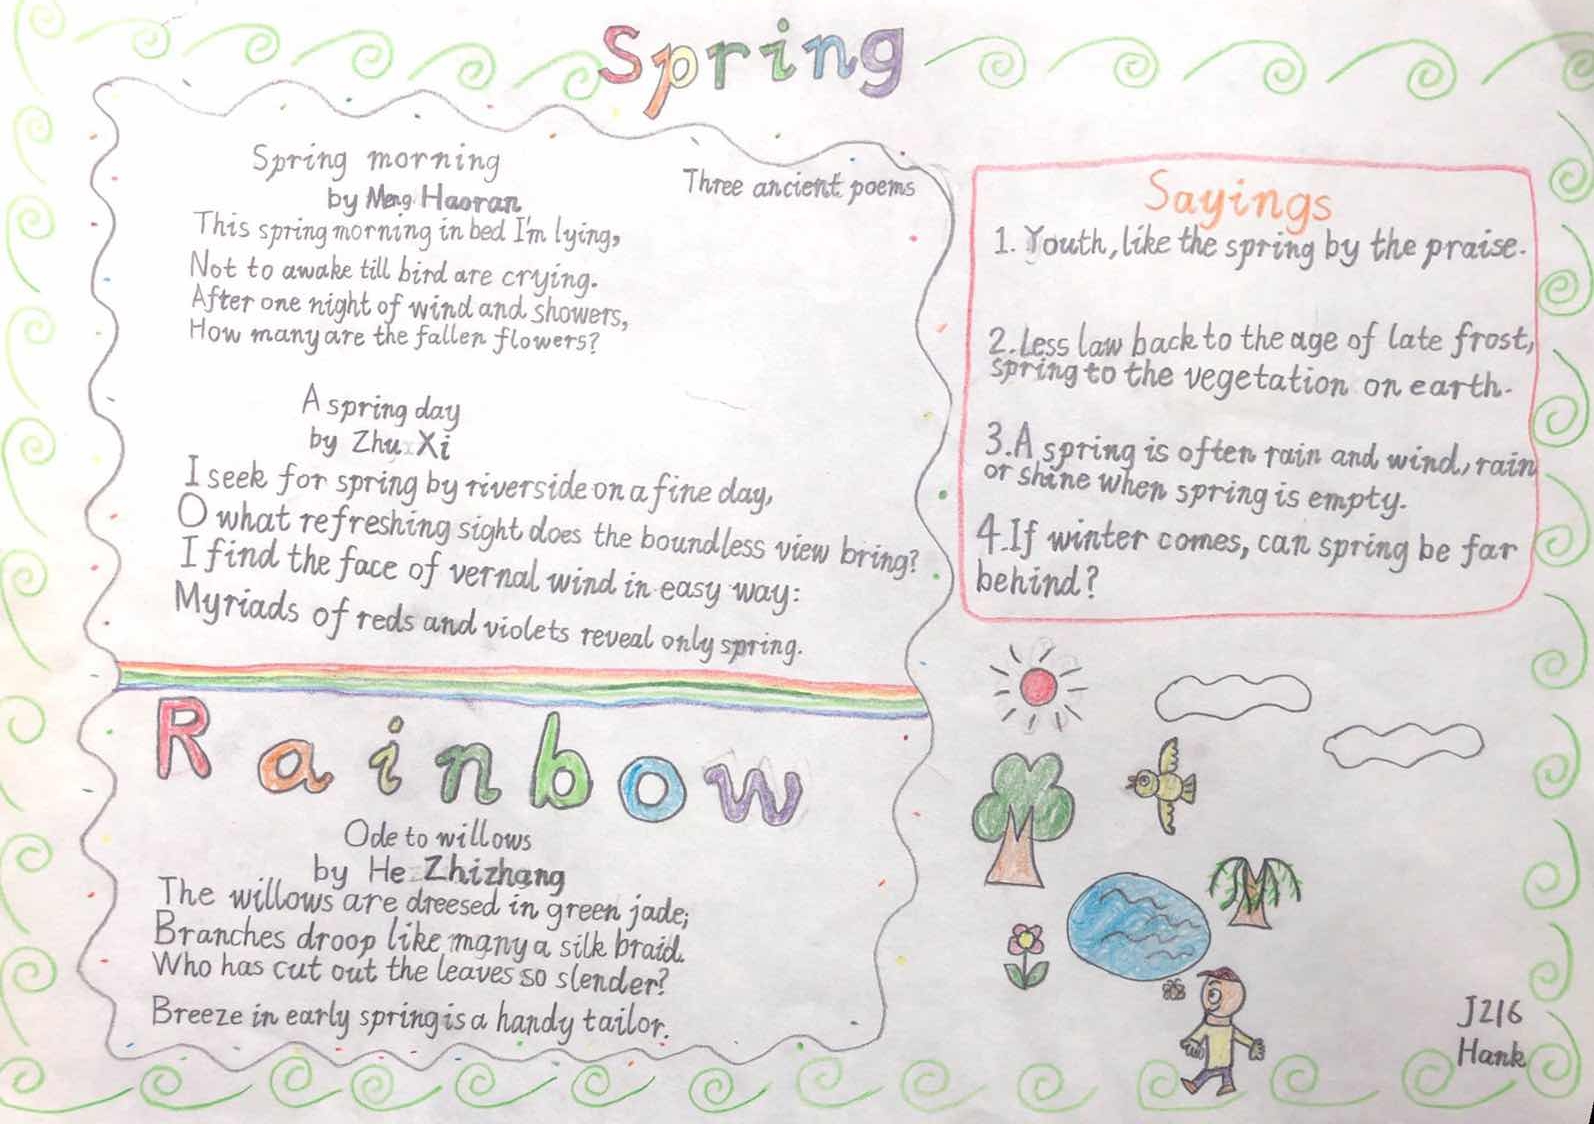 Spring
Spring morning
by Meng Haoran
Three ancient poems
This spring morning in bed I'm lying,
Not to awake till bird are crying.
After one night of wind and showers,
How many are the fallen flowers?
A spring day
by Zhu Xi
I seek for spring by riverside on a fine day,
O what refreshing sight does the boundless view bring?
I find the face of vernal wind in easy way:
Myriads of reds and violets reveal only spring.
Rainbow
Ode to willows
by He Zhizhang
The willows are dreesed in green jade;
Branches droop like many a silk braid.
Who has cut out the leaves so slender?
Breeze in early spring is a handy tailor.
Sayings
1. Youth, like the spring by the praise.
2. Less law back to the age of late frost,
spring to the vegetation on earth.
3. A spring is often rain and wind, rain
or shine when spring is empty.
4. If winter comes, can spring be far
behind?
J216
Hank